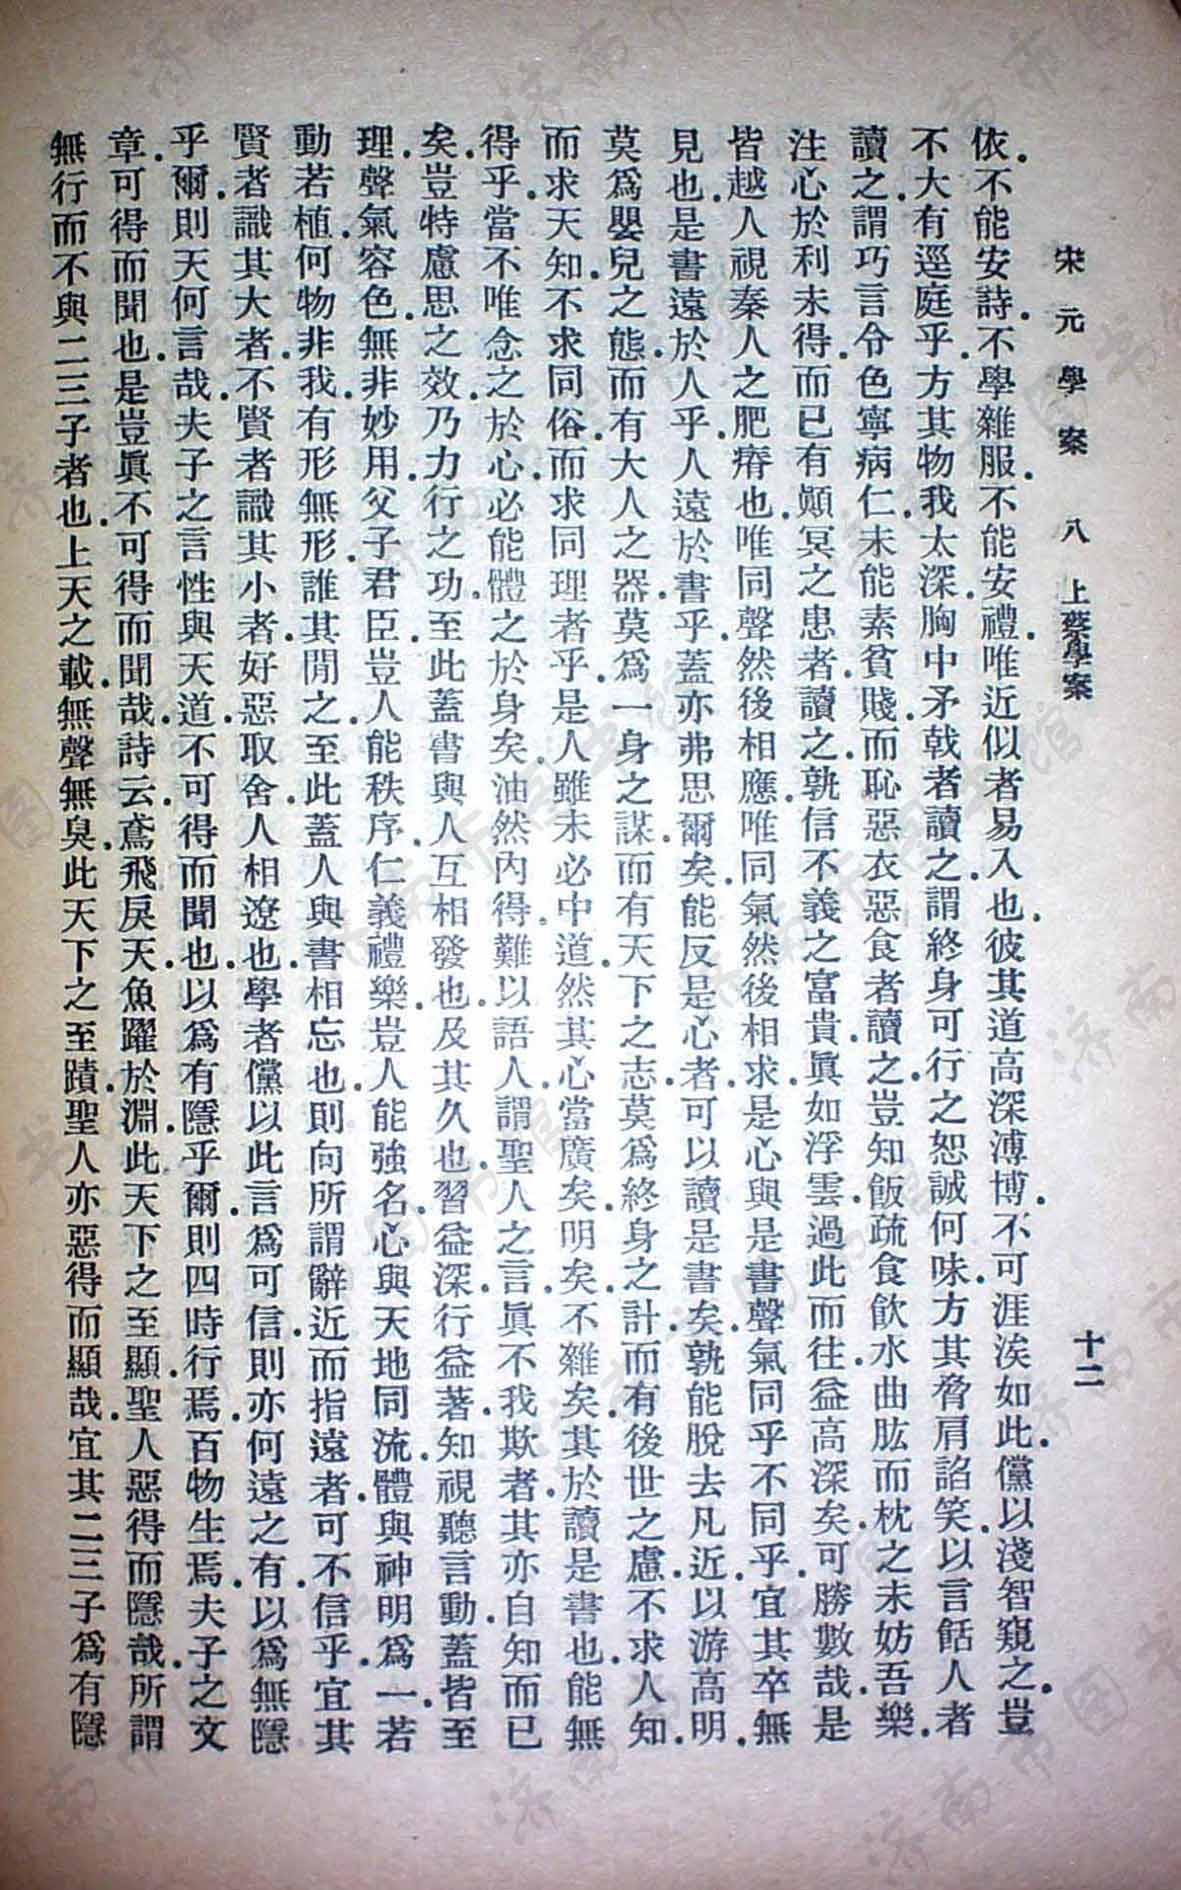 宋元學案 八 上蔡學案 十二
依.不能安詩.不學雜服.不能安禮.唯近似者易入也.彼其道高深溥博.不可涯涘如此.儻以淺智窺之.豈
不大有逕庭乎.方其物我太深.胸中矛戟者讀之.謂終身可行之恕誠何味.方其脅肩諂笑.以言餂人者
讀之.謂巧言令色寧病仁.未能素貧賤.而恥惡衣惡食者讀之.豈知飯疏食飲水曲肱而枕之未妨吾樂.
注心於利未得.而已有顚冥之患者讀之.孰信不義之富貴.眞如浮雲.過此而往.益高深矣.可勝數哉.是
皆越人視秦人之肥瘠也.唯同聲然後相應.唯同氣然後相求.是心與是書.聲氣同乎不同乎.宜其卒無
見也.是書遠於人乎.人遠於書乎.蓋亦弗思爾矣.能反是心者.可以讀是書矣.孰能脫去凡近.以游高明.
莫爲嬰兒之態.而有大人之器.莫爲一身之謀.而有天下之志.莫爲終身之計.而有後世之慮.不求人知.
而求天知.不求同俗.而求同理者乎.是人雖未必中道.然其心當廣矣.明矣.不雜矣.其於讀是書也.能無
得乎.當不唯念之於心.必能體之於身矣.油然內得.難以語人.謂聖人之言.眞不我欺者.其亦自知而已
矣.豈特慮思之效.乃力行之功.至此蓋書與人互相發也.及其久也.習益深.行益著.知視聽言動.蓋皆至
理.聲氣容色.無非妙用.父子君臣.豈人能秩序.仁義禮樂.豈人能強名.心與天地同流.體與神明爲一.若
動若植.何物非我.有形無形.誰其閒之.至此蓋人與書相忘也.則向所謂辭近而指遠者.可不信乎.宜其
賢者識其大者.不賢者識其小者.好惡取舍.人相遼也.學者儻以此言爲可信.則亦何遠之有.以爲無隱
乎爾.則天何言哉.夫子之言性與天道.不可得而聞也.以爲有隱乎爾.則四時行焉.百物生焉.夫子之文
章.可得而聞也.是豈眞不可得而聞哉.詩云.鳶飛戾天.魚躍於淵.此天下之至顯.聖人惡得而隱哉.所謂
無行而不與二三子者也.上天之載.無聲無臭.此天下之至賾.聖人亦惡得而顯哉.宜其二三子爲有隱